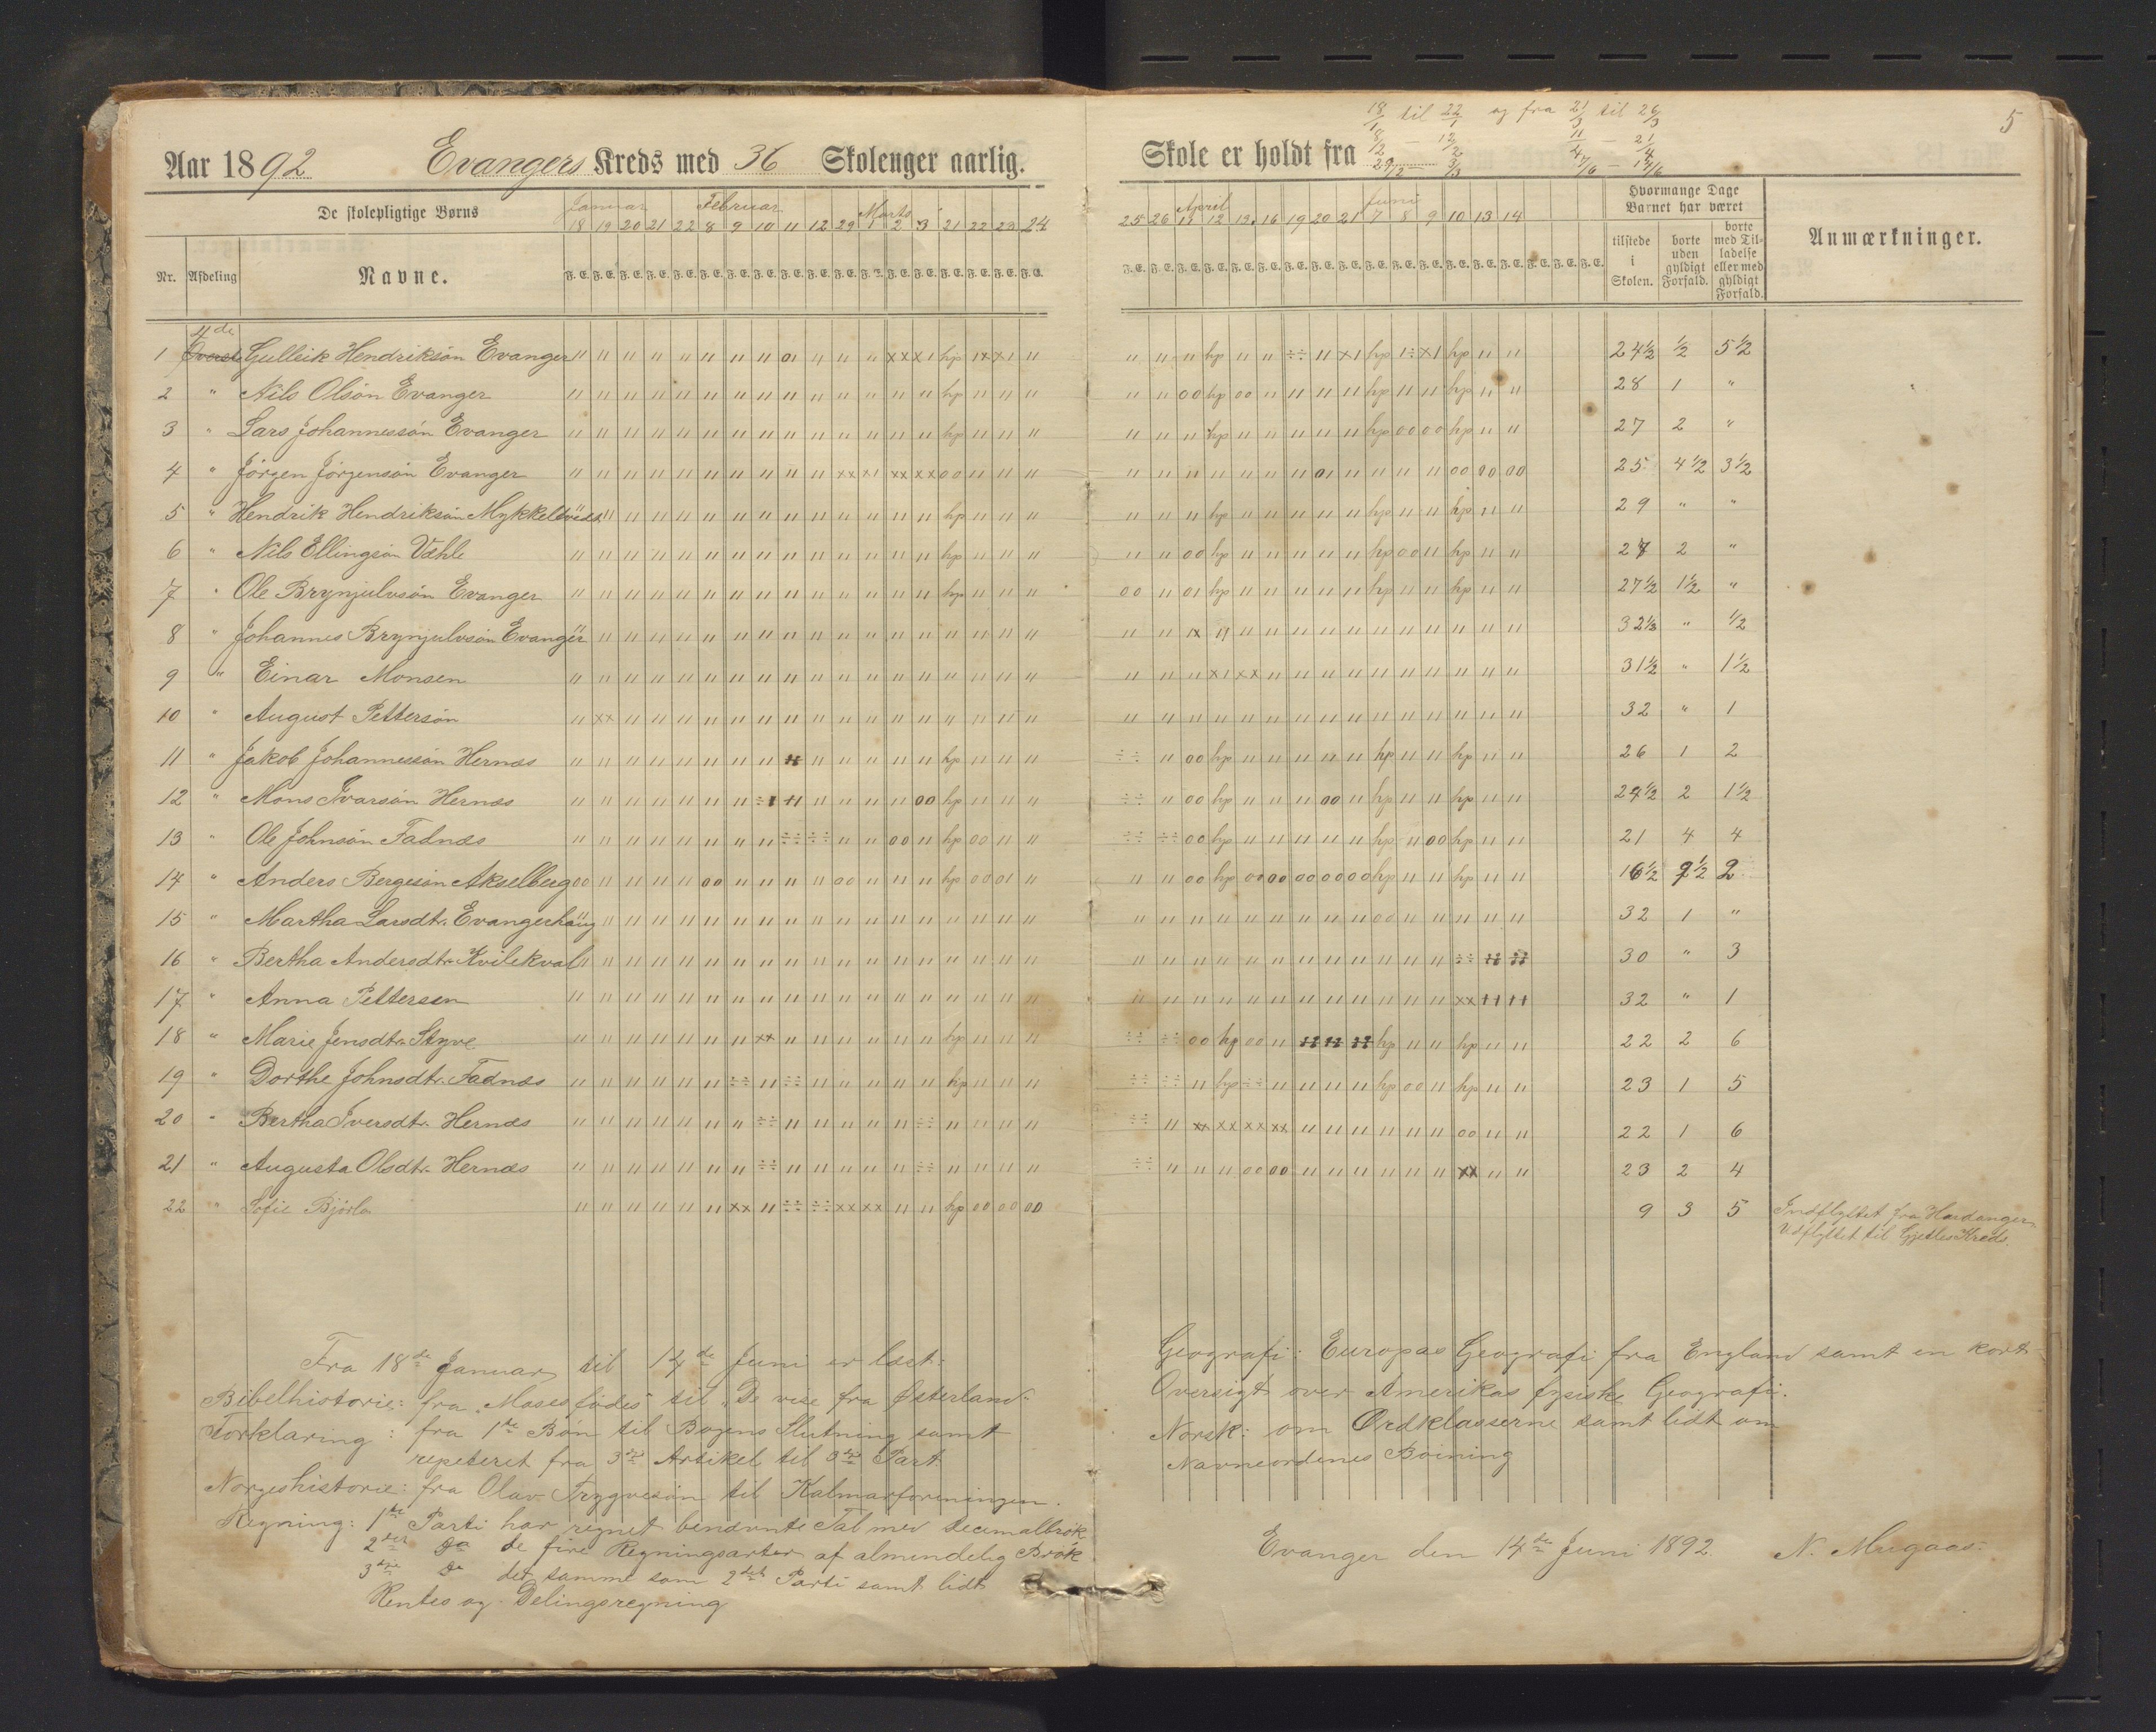 5
18/1 til 22/1 og fra 21/3 til 26/3
8/2 — 12/2 11/4 — 21/4
29/2 — 3/3 7/6 — 14/6
Aar 1892 Evangers Kreds med 36 Skolenger aarlig.
Skole er holdt fra
De skolepligtige Børns
Januar Februar Marts
18 19 20 21 22 8 9 10 11 12 29 1 2 3 21 22 23 24
April Juni
25 26 11 12 13 16 19 20 21 7 8 9 10 13 14
Hvormange Dage Barnet har været
Anmærkninger.
Nr. Afdeling Navne.
F. E. F. E. F. E. F. E. F. E. F. E. F. E. F. E. F. E. F. E. F. E. F. E. F. E. F. E. F. E. F. E. F. E. F. E.
tilstede i Skolen.
borte uden gyldigt Forfald.
borte med Tilladelse eller med gyldigt Forfald.
4de
1 Øverste Gulleik Hendriksøn Evanger 24½ ½ 5½
2 " Nils Olsøn Evanger 28 1 "
3 " Lars Johannessøn Evanger 27 2 "
4 " Jörgen Jörgensøn Evanger 25 4½ 3½
5 " Hendrik Hendriksøn Mykkeltvedt 29 " "
6 " Nils Ellingsøn Væhle 27 2 "
7 " Ole Brynjulvsøn Evanger 27½ 1½ "
8 " Johannes Brynjulvsøn Evanger 32½ " ½
9 " Einar Monsen 31½ " 1½
10 " August Pettersøn 32 " 1
11 " Jakob Johannessøn Hernæs 26 1 2
12 " Mons Ivarsøn Hernæs 24½ 2 1½
13 " Ole Johnsøn Fadnæs 21 4 4
14 " Anders Bergesøn Akselberg 16½ 9½ 2
15 " Martha Larsdtr. Evangerhaug 32 1 "
16 " Bertha Andersdtr. Kvilekval 30 " 3
17 " Anna Pettersen 32 " 1
18 " Marie Jensdtr. Styve 22 2 6
19 " Dorthe Johnsdtr. Fadnæs 23 1 5
20 " Bertha Iversdtr. Hernæs 22 1 6
21 " Augusta Olsdtr. Hernæs 23 2 4
22 " Sofie Bjørlo 9 3 5 Indflyttet fra Hardanger.
Udflyttet til Gjetles Kreds.
Fra 18de Januar til 14de Juni er læst:
Bibelhistorie: fra "Moses fødes" til "De vise fra Østerland".
Forklaring: fra 1ste Bøn til Bogens Slutning samt
repeteret fra 3die Artikel til 3die Part
Norgeshistorie: fra Olav Trygvesøn til Kalmarforeningen.
Regning: 1ste Parti har regnet benævnte Tal med Decimalbrøk
2det Do de fire Regningsarter af almindelig Brøk
3die Do det samme som 2det Parti samt lidt
Rentes og Delingsregning
Geografi: Europas Geografi fra England samt en kort
Oversigt over Amerikas fysiske Geografi.
Norsk: om Ordklasserne samt lidt om
Navneordenes Böining
Evanger den 14de Juni 1892. N. Mugaas.